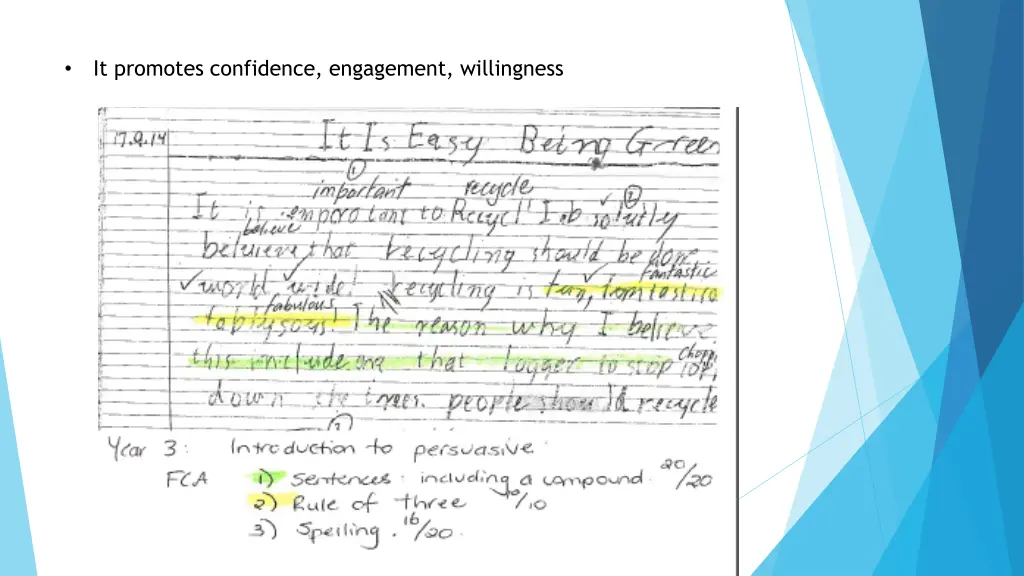 • It promotes confidence, engagement, willingness
17.9.14 It Is Easy Being Green
①
important recycle ②
It is emporotant to Recycl! I absolutly
believe
beleieve that recycling should be done
fantastic
world wide! recycling is fun, fomtastico
fabulous
The reason why I believe
this include that logger to stop
Chopp
down the trees. people should recycle
Year 3: Introduction to persuasive.
FCA 1) Sentences: including a compound. 20/20
2) Rule of three 10/10
3) Spelling. 16/20.